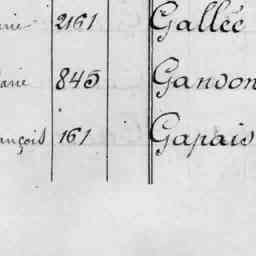 rie 2161 Gallée
arie 845 Gandon
ançois 161 Gapais